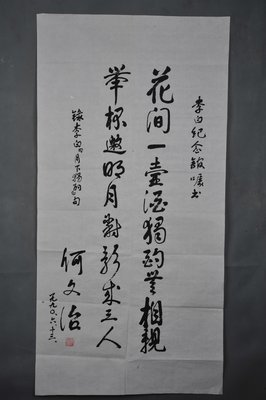 李白纪念馆嘱书
花间一壶酒独酌无相亲
举杯邀明月对影成三人
录李白月下独酌句
何文治
一九九〇.六.十三